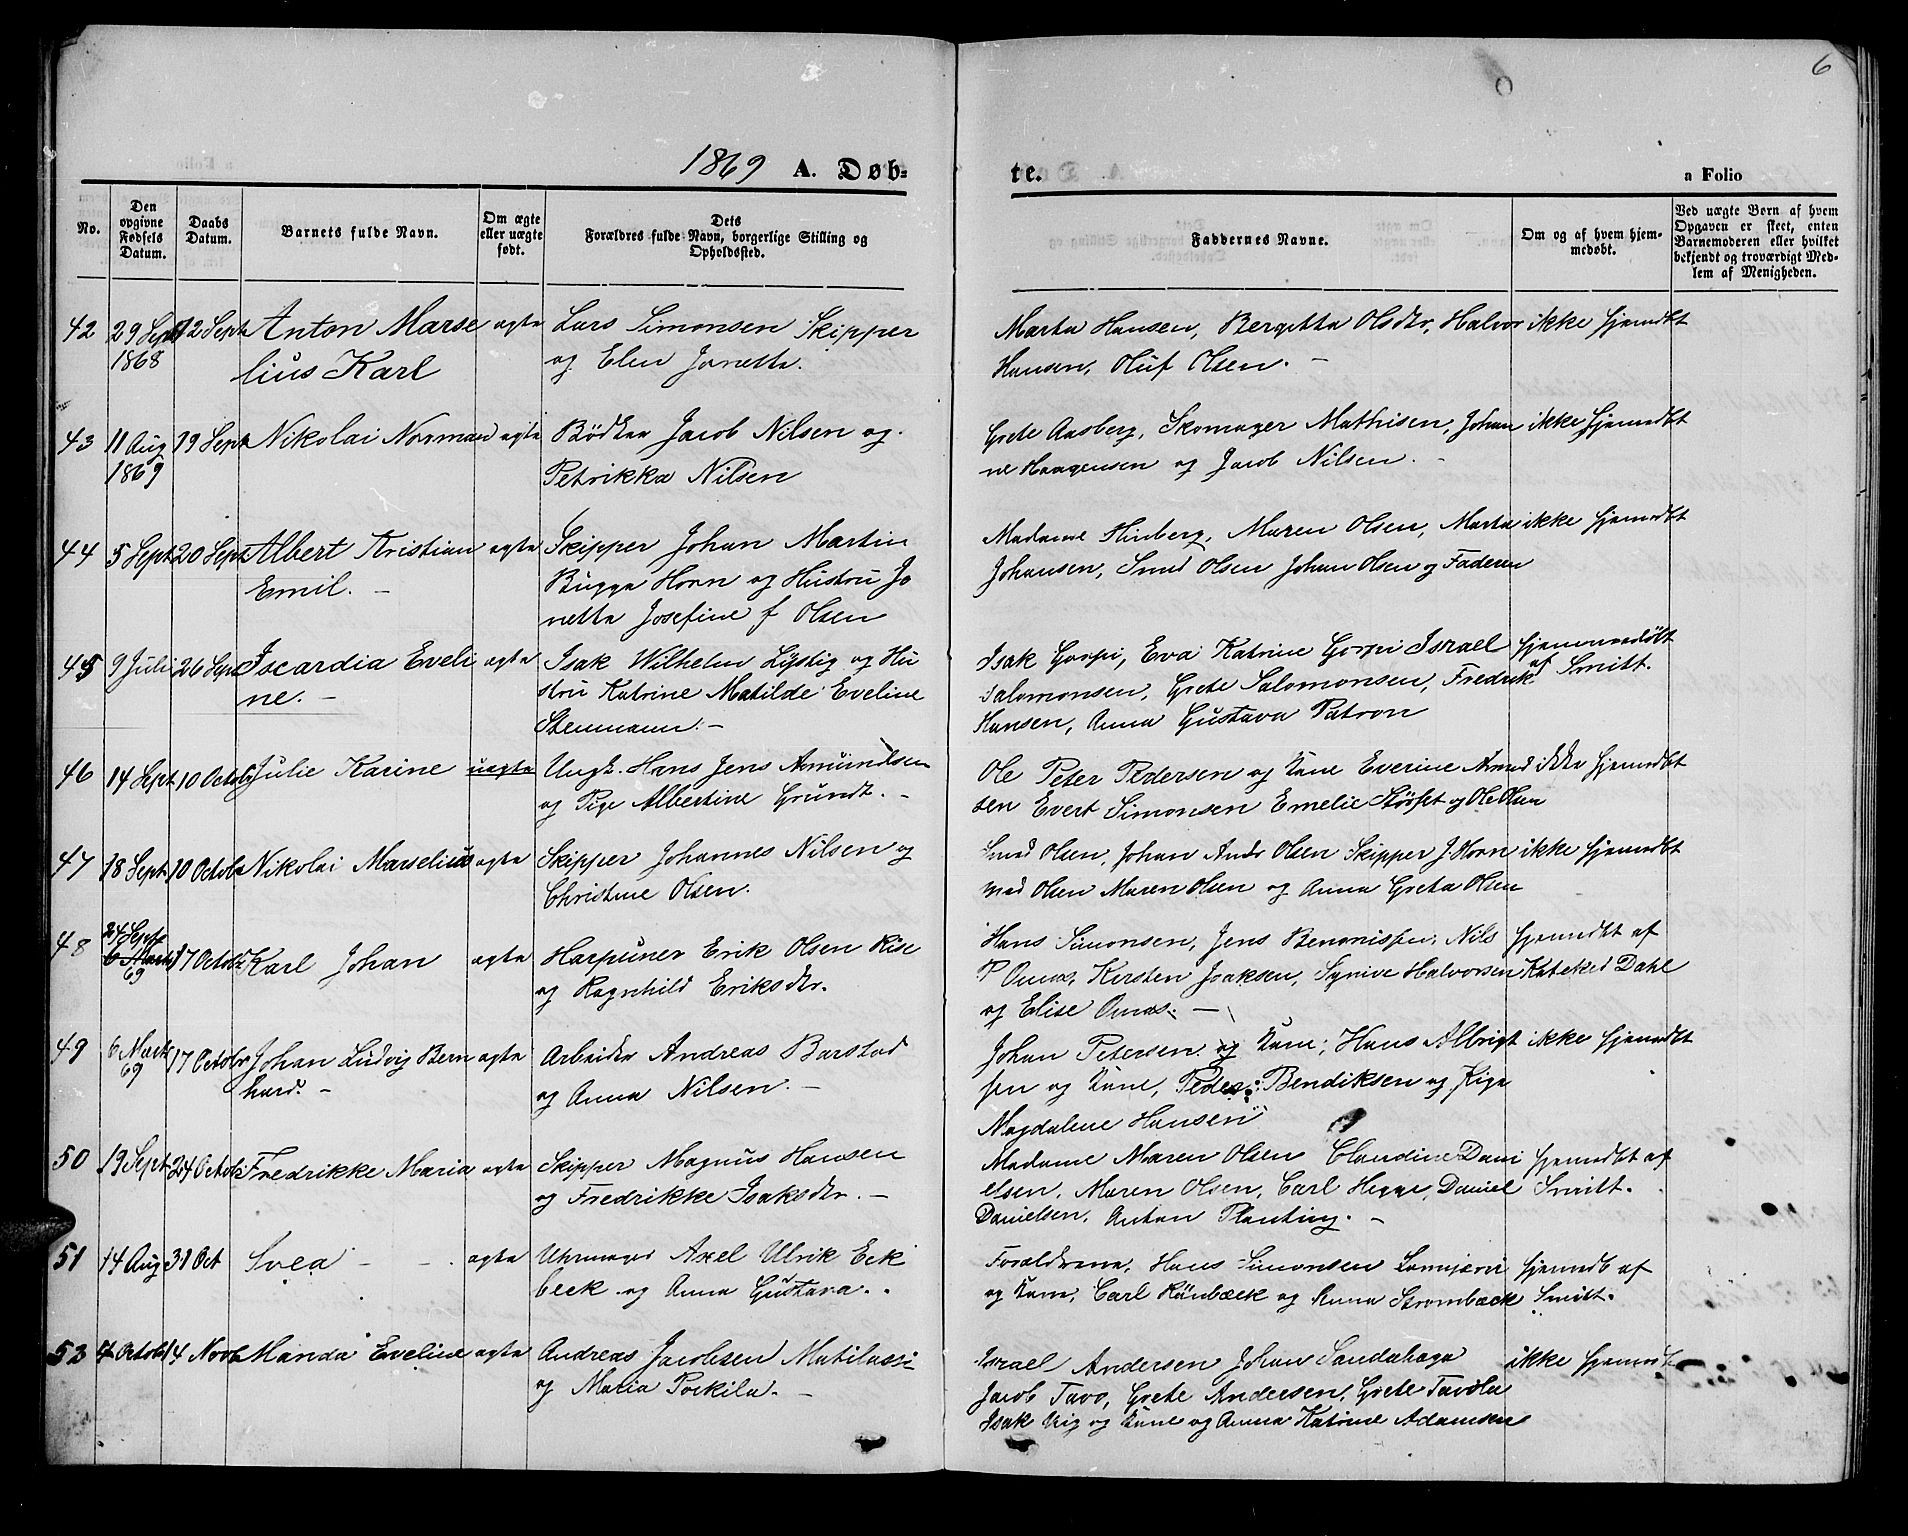 6
1869 A. Døb-
te.
a Folio
No.
Den opgivne Fødsels Datum.
Daabs Datum.
Barnets fulde Navn.
Om ægte eller uægte født.
Dets Forældres fulde Navn, borgerlige Stilling og Opholdssted.
Faddernes Navne.
Om og af hvem hjemmedøbt.
Ved uægte Børn af hvem Opgaven er skeet, enten Barnemoderen eller hvilket bekjendt og troværdigt Medlem af Menigheden.
42 29 Sept 12 Sept Anton Marse ægte Lars Simonsen Skipper Marta Hansen, Bergitta Olsdtr, Halvor ikke hjemdbt
1868 lius Karl og Elen Jonetta. Hansen, Oluf Olsen. —
43 11 Aug 19 Sept Nikolai Norman ægte Bödker Jacob Nilsen og Grete Aasberg, Skomager Mathisen, Johan ikke hjemdbt
1869 Petrikka Nilsen ne Haagensen og Jacob Nilsen. -
44 5 Sept 20 Sept Albert Kristian ægte Skipper Johan Martin Madame Hinberg, Maren Olsen, Marta ikke hjemdbt
Emil. — Bugge Horn og Hustru Jo Johansen, Smed Olsen Johan Olsen og Faderen
netta Josefine f Olsen
45 9 Juli 26 Sept Iscardia Eveli ægte Isak Wilhelm Lipstig og Hu Isak Gorpi, Eva Katrine Gorpi Israel hjemmedøbt
ne. — stru Katrine Matilde Eveline Salomonsen, Grete Salomonsen, Fredrik af Smitt.
Stenmann. — Hansen, Anna Gustava Patron
46 14 Sept 10 Octob Julie Karine uægte Ungk. Hans Jens Amundsen Ole Peter Pedersen og Kone Everine Amud ikke hjemdbt
og Pige Albertine Grundt. — sen Evert Simonsen Emelie Störset og Ole Olsen
47 18 Sept 10 Octob Nikolai Marselius ægte Skipper Johannes Nilsen og Smed Olsen, Johan Ands Olsen Skipper J. Horn ikke hjemdbt
Christine Olsen. Mad Olsen Maren Olsen og Anna Greta Olsen
48 24 Sept 17 Octob Karl Johan ægte Harpuner Erik Olsen Rise Hans Simonsen, Jens Benonisen, Nils hjemdbt af
6 Marts 69 og Ragnhild Eriksdtr. P Onnas, Kirsten Isaksen, Synive Halvorsen Kateket Dahl
og Elise Onnas. —
49 6 Mark 17 Octobr Johan Ludvig Bern ægte Arbeider Andreas Barstad Johan Petersen og Kone, Hans Albrigt ikke hjemdbt
69 hard. — og Anna Nilsen. — sen og Kone, Peder Bendiksen og Pige
Magdalene Hansen
50 19 Sept 24 Octob Fredrikke Maria ægte Skipper Magnus Hansen Madame Maren Olsen Claudine Dani hjemdbt af
og Fredrikke Isaksdtr. — elsen, Maren Olsen, Carl Hegge, Daniel Smitt.
Danielsen, Anton Planting. —
51 14 Aug 31 Oct Svea — — ægte Uhrmager Axel Ulrik Eck Forældrene, Hans Simonsen hjemdb af
beck og Anna Gustava. og Kone, Carl Rönbæck og Anna Strombæck Smitt.
52 4 Octob 14 Novb Manda Eveline ægte Andreas Jacobsen Matilassi Israel Andersen Johan Sandahaga ikke hjemdbt
og Maria Poikila. — Jacob Tavo, Grete Andersen, Grete Tavola
Isak Vig og Kone og Anna Katrine Adamsen